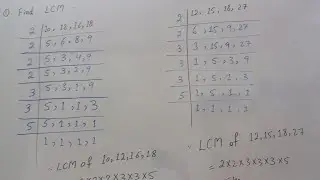 Find LCM
2 | 10, 12, 16, 18
2 | 5, 6, 8, 9
2 | 5, 3, 4, 9
2 | 5, 3, 2, 9
3 | 5, 3, 1, 9
3 | 5, 1, 1, 3
5 | 5, 1, 1, 1
1, 1, 1, 1
∴ LCM of 10, 12, 16, 18
2 | 12, 15, 18, 27
2 | 6, 15, 9, 27
3 | 3, 15, 9, 27
3 | 1, 5, 3, 9
3 | 1, 5, 1, 3
5 | 1, 5, 1, 1
1, 1, 1, 1
∴ LCM of 12, 15, 18, 27
= 2×2×3×3×3×5